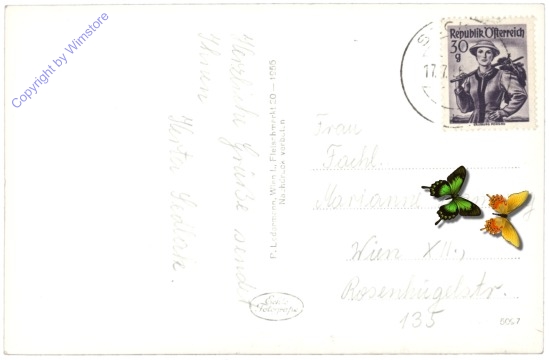 Copyright by Wimstore
Herzliche Grüße sendet
Ihnen Herta Sedlak.
P. Ledermann, Wien I., Fleischmarkt 20 — 1955
Nachdruck verboten
Echte
Fotografie
17.7.
Republik Österreich
30
g
Frau
Fachl.
Marianne
Wien XII.,
Rosenhügelstr.
135